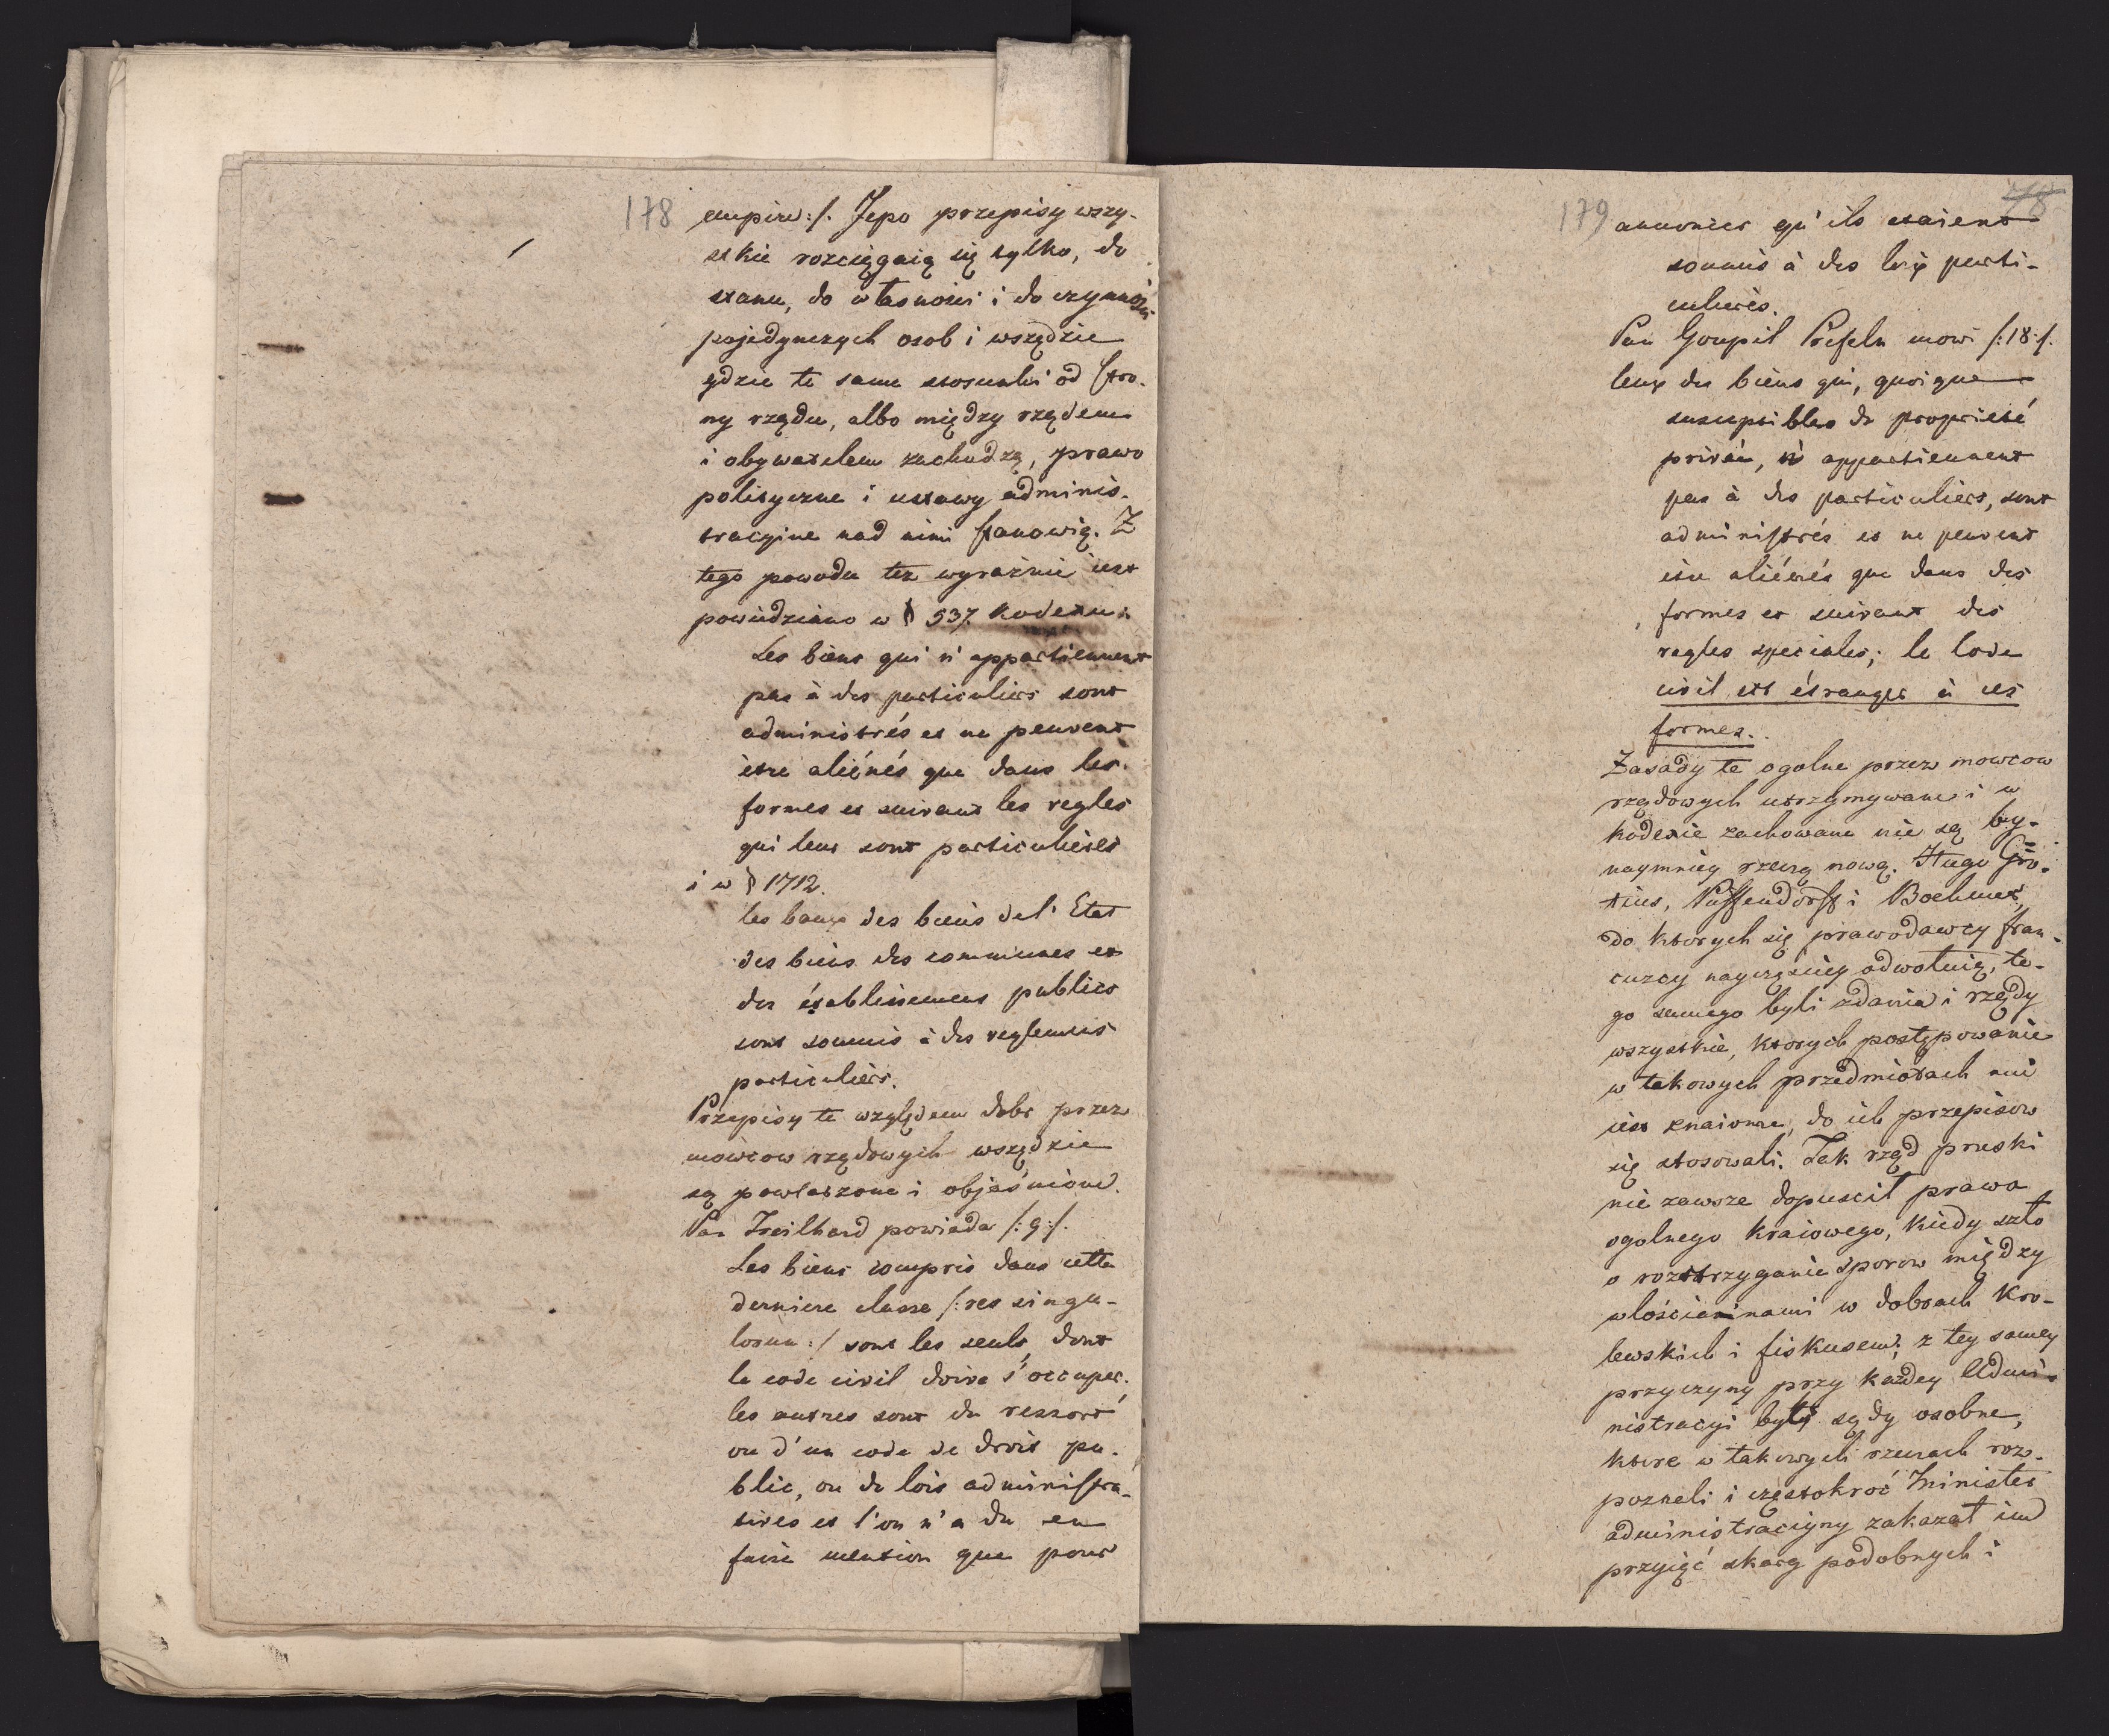 178
empire :/. Jego przepisy wszy-
stkie rozciągaią się tylko, do
stanu, do własności i do czynności
pojedynczych osob i wszędzie
gdzie te same stosunki od stro-
ny rządu, albo między rządem
i obywatelem zachodzą, prawo
polityczne i ustawy adminis-
tracyine nad nimi stanowią. Z
tego powodu też wyraźnie iest
powiedziano w § 537. Kodexu:
Les biens qui n'appartiennent
pas à des particuliers sont
administrés et ne peuvent
être aliénés que dans les
formes et suivant les regles
qui leur sont particulières
i w § 1712.
les baux des biens del' Etat
des biens des communes et
des établissemens publics
sont soumis à des reglemens
particuliers.
Przepisy te względem dobr przez
mówcow rządowych wszędzie
są powtarzone i objaśnione.
Pan Treilhard powiada /:9:/.
Les biens compris dans cette
derniere classe /:res singu-
lorum:/ sont les seuls, dont
le code civil doive s'occuper.
les autres sont du ressort
ou d'un code de droit pu-
blic, ou de lois administra-
tives et l'on n'a du en
faire mention que pour
179
78
annoncer qu'ils etaient
soumis à des loix parti-
culieres.
Pan Goupil Prefeln mowi /:18:/.
ceux des biens qui, quoique
susceptibles de proprieté
privée, n'appartiennent
pas à des particuliers, sont
administrés et ne peuvent
être aliénés que dans des
formes et suivant des
regles speciales; le Code
civil est étranger à ces
formes.
Zasady te ogolne przez mowcow
rządowych utrzymywane i w
kodexie zachowane nie są by-
naymniey rzeczą nową. Hugo Gro-
tius, Puffendorff i Boehmer,
do ktorych się prawodawcy fran-
cuzcy nayczęściey odwołuią, te-
go samego byli zdania i rządy
wszystkie, ktorych postępowanie
w takowych przedmiotach nie
iest znaiome, do ich przepisow
się stosowali. Tak rząd pruski
nie zawsze dopuscił prawa
ogolnego kraiowego, kiedy szło
o rozstrzyganie sporow między
włościaninami w dobrach Kro-
lewskich i fiskusem; z tey samey
przyczyny przy każdey Admi-
nistracyi były sądy osobne,
ktore w takowych rzeczach roz-
poznali i częstokroć Minister
administracyjny zakazał im
przyiąć skarg podobnych i